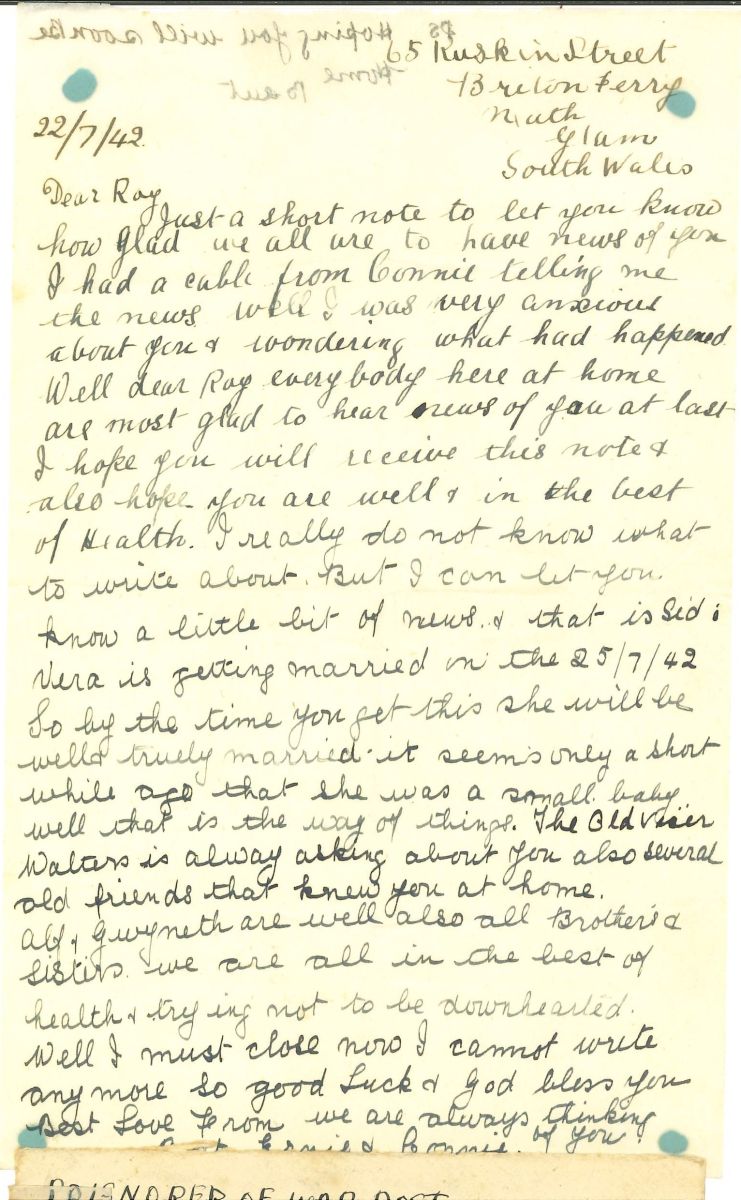 PS Hoping you will soon be
Home
65 Ruskin Street
Briton Ferry
Neath
Glam
South Wales
22/7/42
Dear Roy
Just a short note to let you know
how Glad we all are to have news of you
I had a cable from Connie telling me
the news well I was very anxious
about you & wondering what had happened
Well dear Roy everybody here at home
are most glad to hear news of you at last
I hope you will receive this note &
also hope you are well & in the best
of Health. I really do not know what
to write about. But I can let you
know a little bit of news. & that is Sid's
Vera is getting married on the 25/7/42
So by the time you get this she will be
well & truely married. it seems only a short
while ago that she was a small baby
well that is the way of things. The Old
Walters is alway asking about you also several
old friends that knew you at home.
Alf & Gwyneth are well also all Brothers &
Sisters. we are all in the best of
health & trying not to be downhearted.
Well I must close now I cannot write
any more so good Luck & God bless you
Best Love From we are always thinking
Ernie & Connie. of you.
PRISNORER OF WAR POST